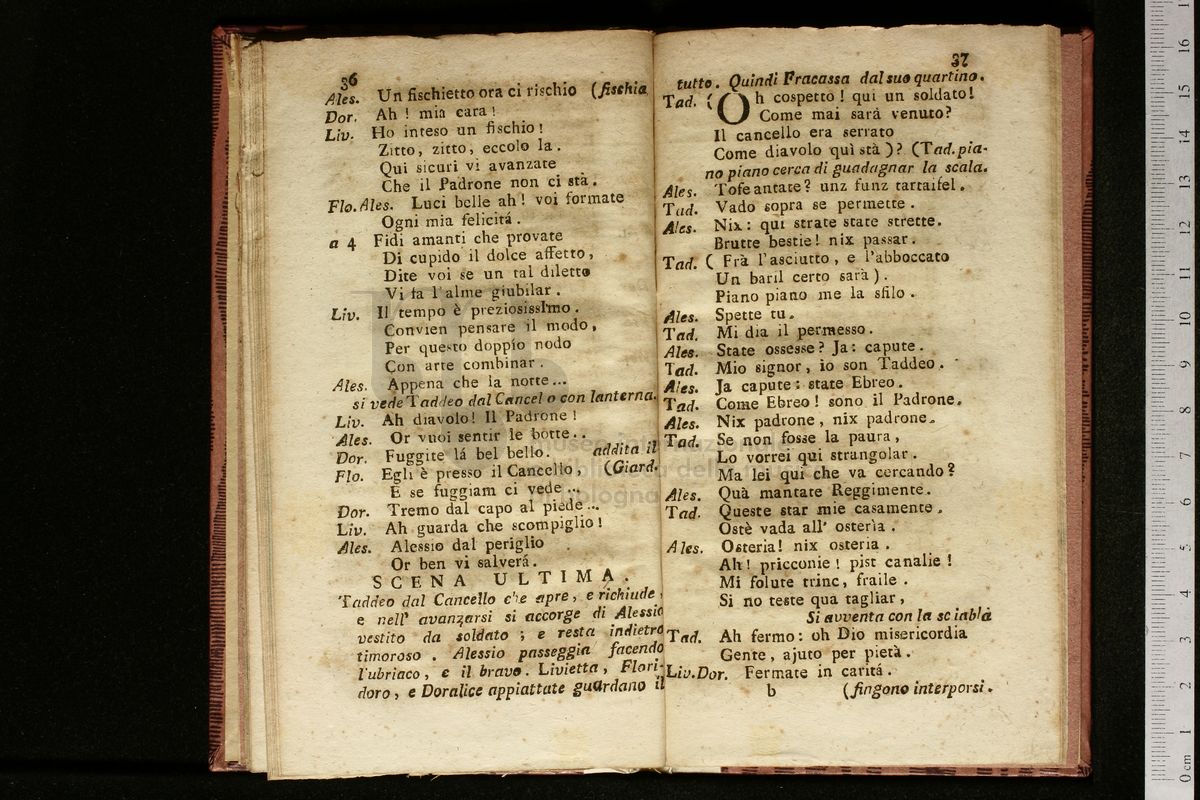 36
Ales. Un fischietto ora ci rischio (fischia
Dor. Ah! mia cara!
Liv. Ho inteso un fischio!
Zitto, zitto, eccolo la.
Qui sicuri vi avanzate
Che il Padrone non ci stà.
Flo. Ales. Luci belle ah! voi formate
Ogni mia felicitá.
a 4 Fidi amanti che provate
Di cupido il dolce affetto,
Dite voi se un tal diletto
Vi fa l'alme giubilar.
Liv. Il tempo è preziosissImo.
Convien pensare il modo,
Per questo doppio nodo
Con arte combinar.
Ales. Appena che la notte...
si vede Taddeo dal Cancel o con lanterna.
Liv. Ah diavolo! Il Padrone!
Ales. Or vuoi sentir le botte..
Dor. Fuggite lá bel bello. addita il
Flo. Egli è presso il Cancello, (Giard.
E se fuggiam ci vede...
Dor. Tremo dal capo al piede...
Liv. Ah guarda che scompiglio!
Ales. Alessio dal periglio
Or ben vi salverá.
SCENA ULTIMA.
Taddeo dal Cancello che apre, e richiude,
e nell' avanzarsi si accorge di Alessio
vestito da soldato; e resta indietro
timoroso. Alessio passeggia facendo
l'ubriaco, e il bravo. Livietta, Flori-
doro, e Doralice appiattate guardano il
37
tutto. Quindi Fracassa dal suo quartino.
Tad. (Oh cospetto! qui un soldato!
Come mai sarà venuto?
Il cancello era serrato
Come diavolo quì stà)? (Tad. pia-
no piano cerca di guadagnar la scala.
Ales. Tofe antate? unz funz tartaifel.
Tad. Vado sopra se permette.
Ales. Nix: qui strate state strette.
Brutte bestie! nix passar.
Tad. (Frà l'asciutto, e l'abboccato
Un baril certo sarà).
Piano piano me la sfilo.
Ales. Spette tu.
Tad. Mi dia il permesso.
Ales. State ossesse? Ja: capute.
Tad. Mio signor, io son Taddeo.
Ales. Ja capute: state Ebreo.
Tad. Come Ebreo! sono il Padrone.
Ales. Nix padrone, nix padrone.
Tad. Se non fosse la paura,
Lo vorrei qui strangolar.
Ma lei qui che va cercando?
Ales. Quà mantate Reggimente.
Tad. Queste star mie casamente.
Ostè vada all' osterìa.
Ales. Osteria! nix osteria.
Ah! pricconie! pist canalie!
Mi folute trinc, fraile.
Si no teste qua tagliar,
Si avventa con la sciabla
Tad. Ah fermo: oh Dio misericordia
Gente, ajuto per pietà.
Liv. Dor. Fermate in caritá.
b (fingono interporsi.